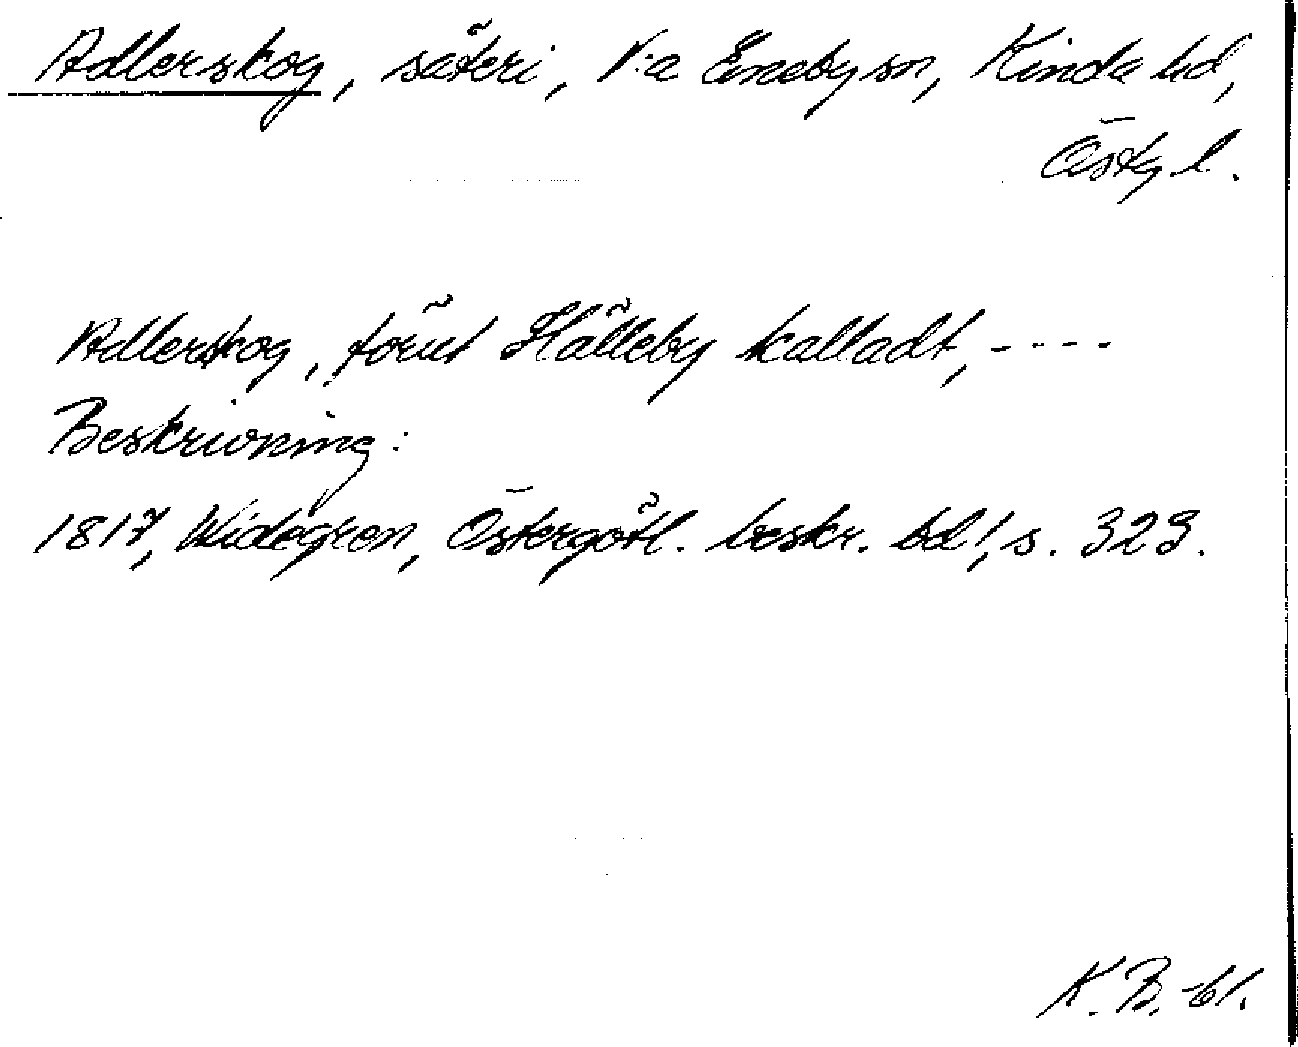 Adlerskog, säteri, V:a Eneby sn, Kinda hd,
Östg l.
Adlerskog, förut Hälleby kalladt, ----
Beskrivning:
1817, Widegren, Östergötl. beskr. bd 1, s. 323.
K. B. -61.